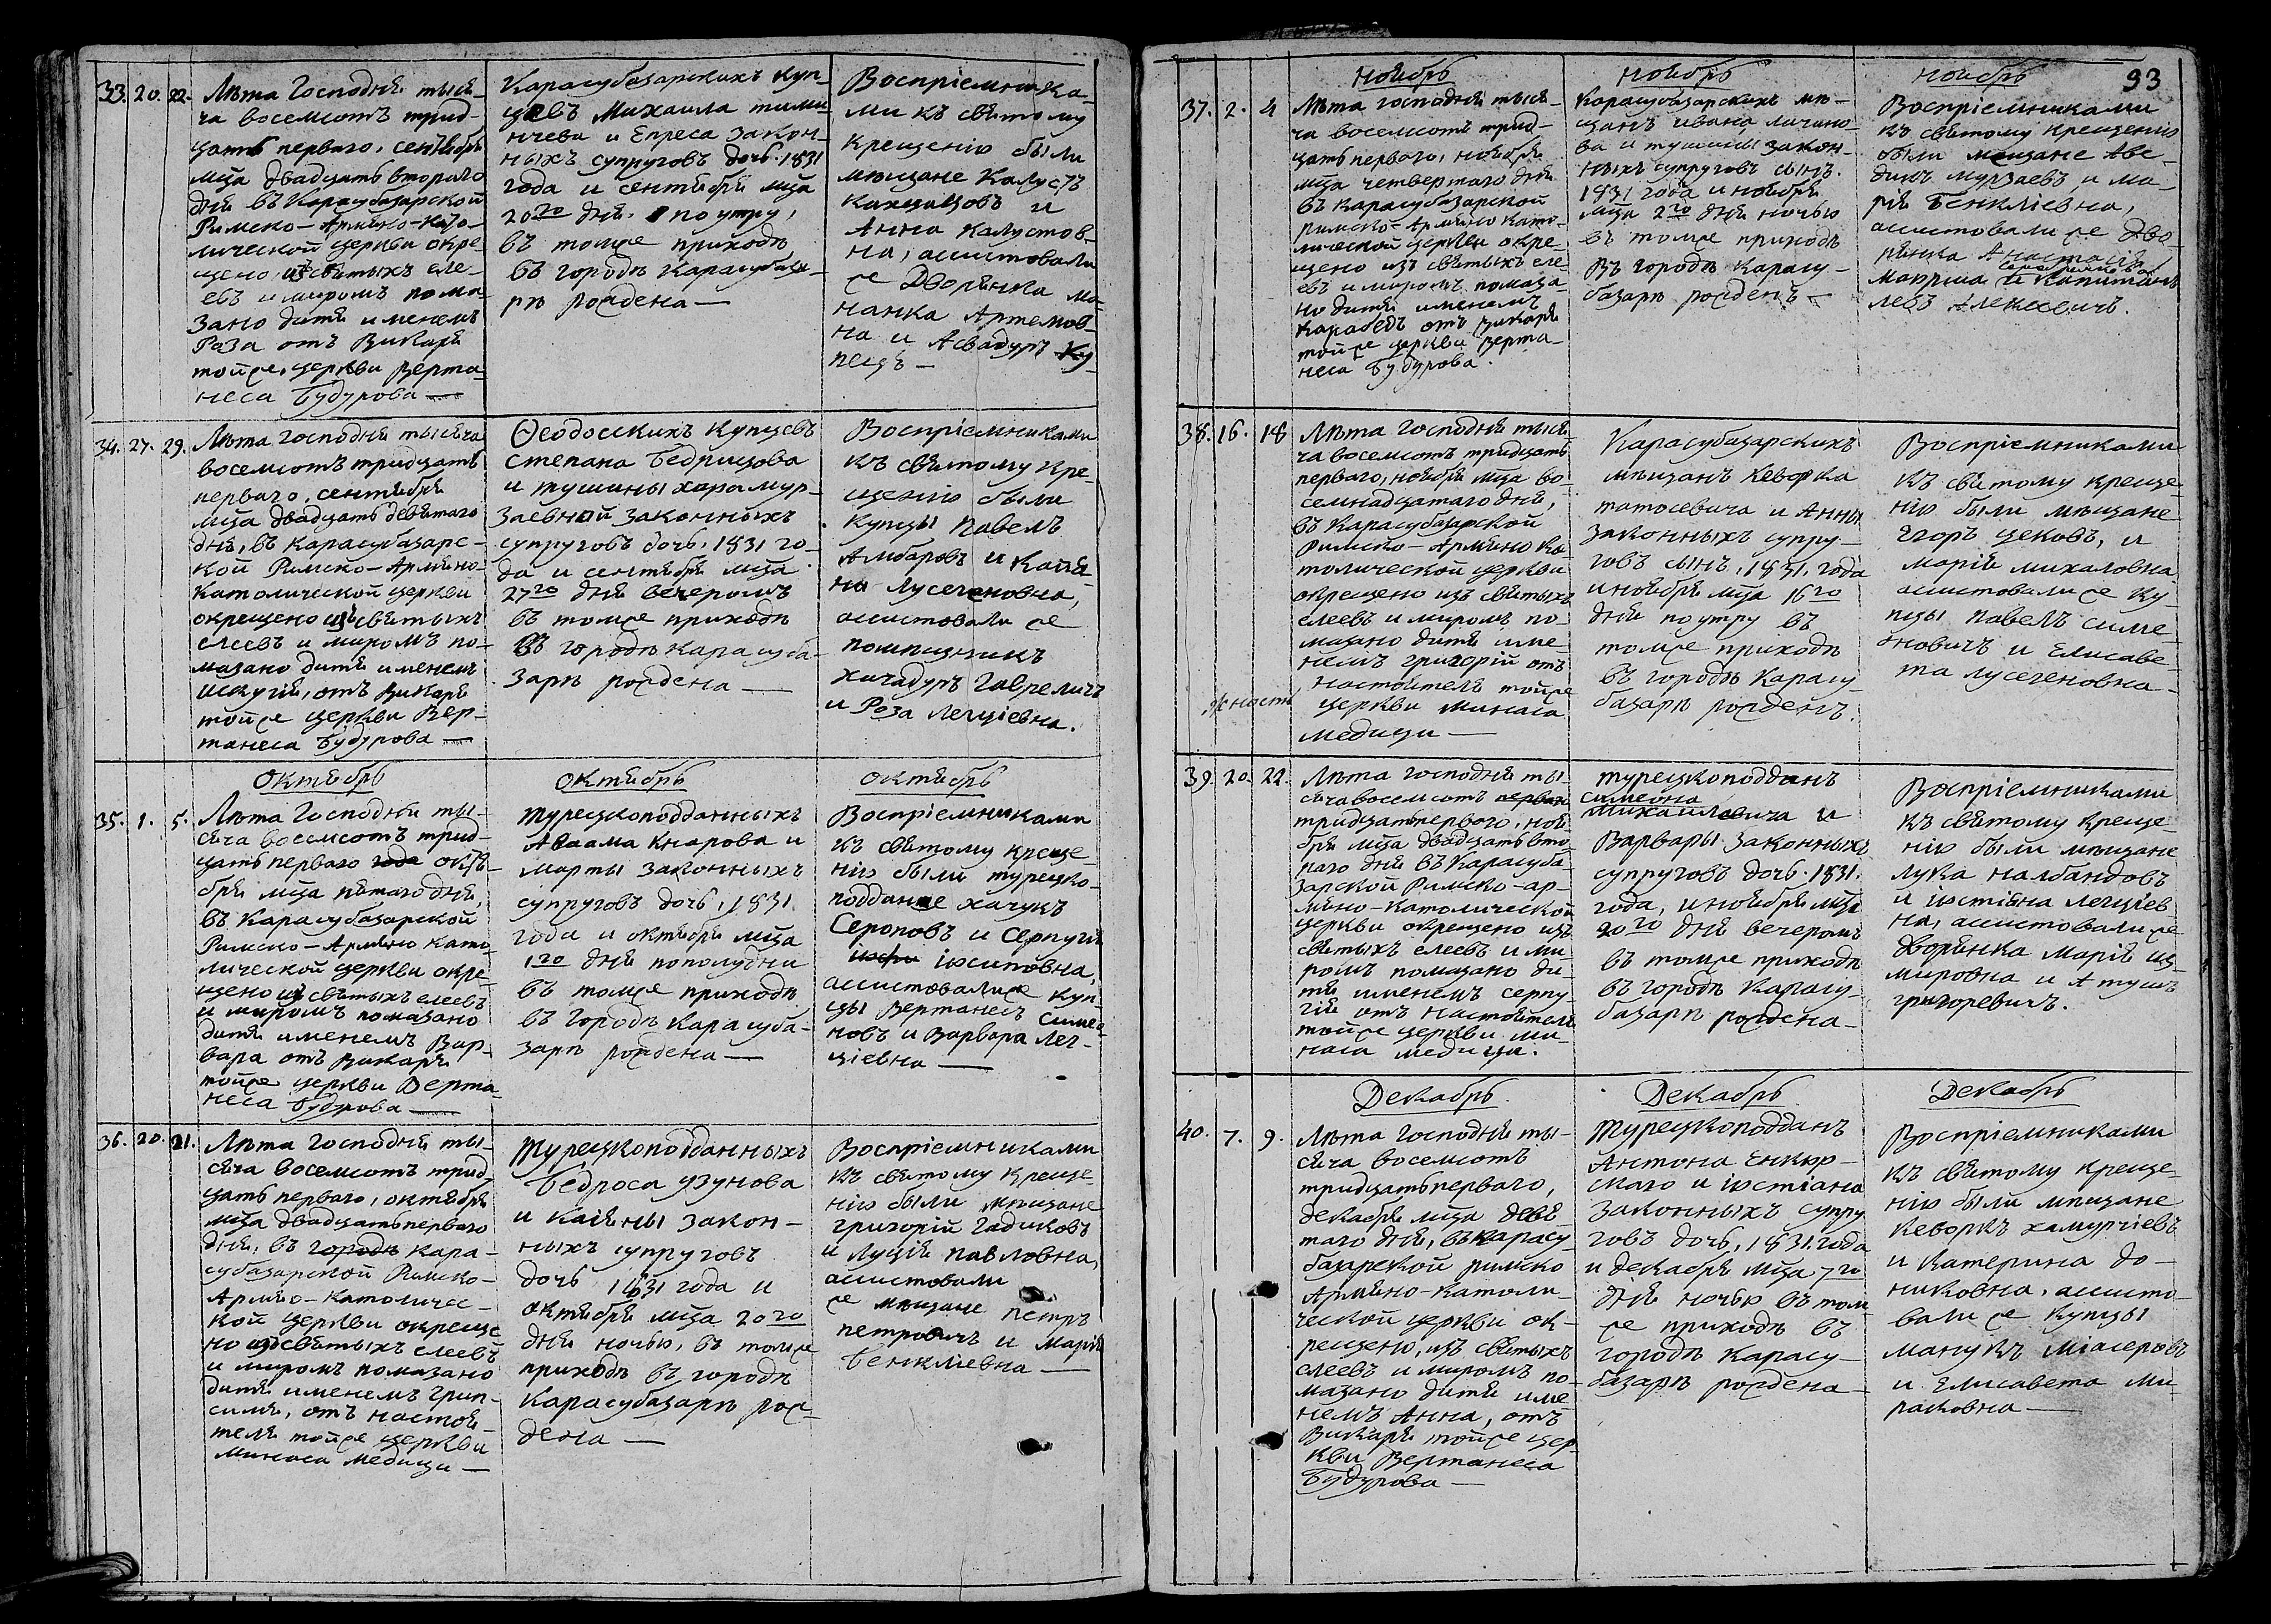 33. 20. 22.
Лѣта Господня тыся-
ча восемсотъ трид-
цать перваго, сентября
мца двадцать втораго
дня въ Карасубазарской
Римско-Армяно-Като-
лической церкви окре-
щено, изъ святыхъ еле-
евъ и миромъ пома-
зано дитя именемъ
Роза отъ Викарія
тойже, церкви Верта-
неса Будурова —
Карасубазарскихъ куп-
цевъ Михаила
и Епреса закон-
ныхъ супруговъ дочь. 1831
года и сентября мца
20го дня, по утру,
въ томже приходѣ
въ городѣ Карасубаза-
рѣ рождена —
Воспріемника-
ми къ святому
крещенію были
мѣщане Калустъ
и
Анна Калустов-
на, ассистовали
же Дворянка Ма-
нанка Артемов-
на и Асвадуръ Ку-
пецъ —
34. 27. 29.
Лѣта господня тысяча
восемсотъ тридцать
перваго, сентября
мца двадцать девятаго
дня, въ карасубазарс-
кой Римско-Армяно-
Католической церкви
окрещено изъ святыхъ
елеевъ и миромъ по-
мазано дитя именемъ
Искугія, отъ Викарія
тойже церкви Вер-
танеса Будурова —
Ѳеодосскихъ Купцевъ
Степана Бедрицова
и тушины харамур-
заевной законныхъ
супруговъ дочь, 1831 го-
да и сентября мца
27го дня вечеромъ
въ томже приходѣ
въ городѣ Карасуба-
зарѣ рождена —
Воспріемниками
къ святому кре-
щенію были
купцы Павелъ
Амбаровъ и Кайя-
на Лусегеновна,
ассистовали же
помѣщикъ
хачадуръ Гавреличъ
и Роза легціевна.
Октябрь
Октябрь
Октябрь
35. 1. 5.
Лѣта Господня ты-
сяча восемсотъ трид-
цать перваго года октя-
бря мца пятаго дня,
въ Карасубазарской
Римско-Армяно като
лической церкви окре-
щено изъ святыхъ елеевъ
и миромъ помазано
дитя именемъ Вар-
вара отъ Викарія
тойже церкви Верта-
неса Будурова —
турецкоподданныхъ
Аваама Кнарова и
марты законныхъ
супруговъ дочь, 1831
года и октября мца
1го дня пополудни
въ томже приходѣ
въ городѣ Карасуба-
зарѣ рождена —
Воспріемниками
къ святому креще
нію были турецко-
подданые хачукъ
Сероповъ и Серпугія
іосиповна,
ассистовали же куп
цы Вертанесъ Симео
новъ и Варвара лег-
ціевна —
36. 20. 21.
Лѣта Господня ты-
сяча восемсотъ трид
цать перваго, октября
мца двадцать перваго
дня, въ городѣ кара-
субазарской Римско-
Армяно-католичес-
кой церкви окреще
но изъ святыхъ елеевъ
и миромъ помазано
дитя именемъ Грип-
симя, отъ настоя
теля тойже церкви
минаса медици —
Турецкоподданныхъ
Бедроса узунова
и каіяны закон-
ныхъ супруговъ
дочь 1831 года и
октября мца 20го
дня ночью, въ томже
приходѣ въ городѣ
Карасубазарѣ рож-
дена —
Воспріемниками
къ святому креще-
нію были мѣщане
григорій Гадиковъ
и Луція павловна,
ассистовали
же мѣщане петръ
петровичъ и Марія
Бенкліевна —
93
ноябрь
ноябрь
ноябрь
37. 2. 4
Лѣта господня тыся-
ча восемсотъ трид-
цать перваго, ноября
мца четвертаго дня
въ Карасубазарской
римско-Армяно като-
лической церкви окре-
щено изъ святыхъ еле-
евъ и миромъ помаза-
но дитя именемъ
Карабедъ отъ викарія
тойже церкви Верта-
неса Будурова.
Карасубазарскихъ мѣ-
щанъ ивана личино-
ва и тушины закон-
ныхъ супруговъ сынъ.
1831 года и ноября
мца 2го дня ночью
въ томже приходѣ
въ городѣ Карасу-
базарѣ рожденъ —
Воспріемниками
къ святому крещенію
были мещане Аве-
дикъ мурзаевъ и ма-
рія Бенкліевна,
ассистовали же Дво-
рянка Анастасія
и Капитанъ
левъ Алексеевичъ.
38. 16. 18
Лѣта Господня тыся
ча восемсотъ тридцать
перваго, ноября мца во-
семнадцатаго дня,
въ Карасубазарской
Римско-Армяно ка-
толической церкви
окрещено изъ святыхъ
елеевъ и миромъ по-
мазано дитя име
немъ григорій отъ
настоятеля тойже
церкви минаса
медици —
Карасубазарскихъ
мѣщанъ Кеворка
татосевича и Анны
законныхъ супру-
говъ сынъ, 1831. года
и ноября мца 16го
дня по утру въ
томже приходѣ
въ городѣ Карасу-
базарѣ рожденъ.
Воспріемниками
къ святому креще-
нію были мѣщане
Егоръ цековъ, и
марія михаловна
ассистовали же ку-
пцы павелъ симе-
оновичъ и Елисаве-
та лусегеновна -
39. 20. 22.
Лѣта господня ты-
сяча восемсотъ перваго
тридцать перваго, ноя-
бря мца двадцать вто-
раго дня въ Карасуба-
зарской Римско-ар-
мяно-католической
церкви окрещено изъ
святыхъ елеевъ и ми-
ромъ помазано ди-
тя именемъ серпу-
гія отъ настоятеля
тойже церкви ми-
наса медици.
турецкоподданъ
симеона
Михайлевича и
Варвары законныхъ
супруговъ дочь. 1831.
года, и ноября мца
20го дня вечеромъ
въ томже приходѣ
въ городѣ Карасу-
базарѣ рождена —
Воспріемниками
къ святому креще-
нію были мѣщане
лука налбандовъ
и іюстіяна легціев-
на, ассистовали же
дворянка Марія из-
мировна и Атушъ
григоревичъ.
Декабрь
Декабрь
Декабрь
40. 7. 9.
Лѣта Господня ты-
сяча восемсотъ
тридцать перваго,
декабря мца девя
таго дня, въ карасу-
базарской римско
Армяно-католи-
ческой церкви ок-
рещено, изъ святыхъ
елеевъ и миромъ по-
мазано дитя име
немъ Анна, отъ
Викарія тойже цер-
кви Вертанеса
Будурова —
Турецкоподданъ
Антона Енкюр-
скаго и іюстіана
законныхъ супру
говъ дочь, 1831. года
и декабря мца 7го
дня ночью въ том
же приходѣ въ
городѣ Карасу-
базарѣ рождена —
Воспріемниками
къ святому креще-
нію были мѣщане
кеворкъ хамурчіевъ
и Катерина До-
никовна, ассисто-
вали же купцы
манукъ міасеровъ
и Елисавета Ми-
раковна —